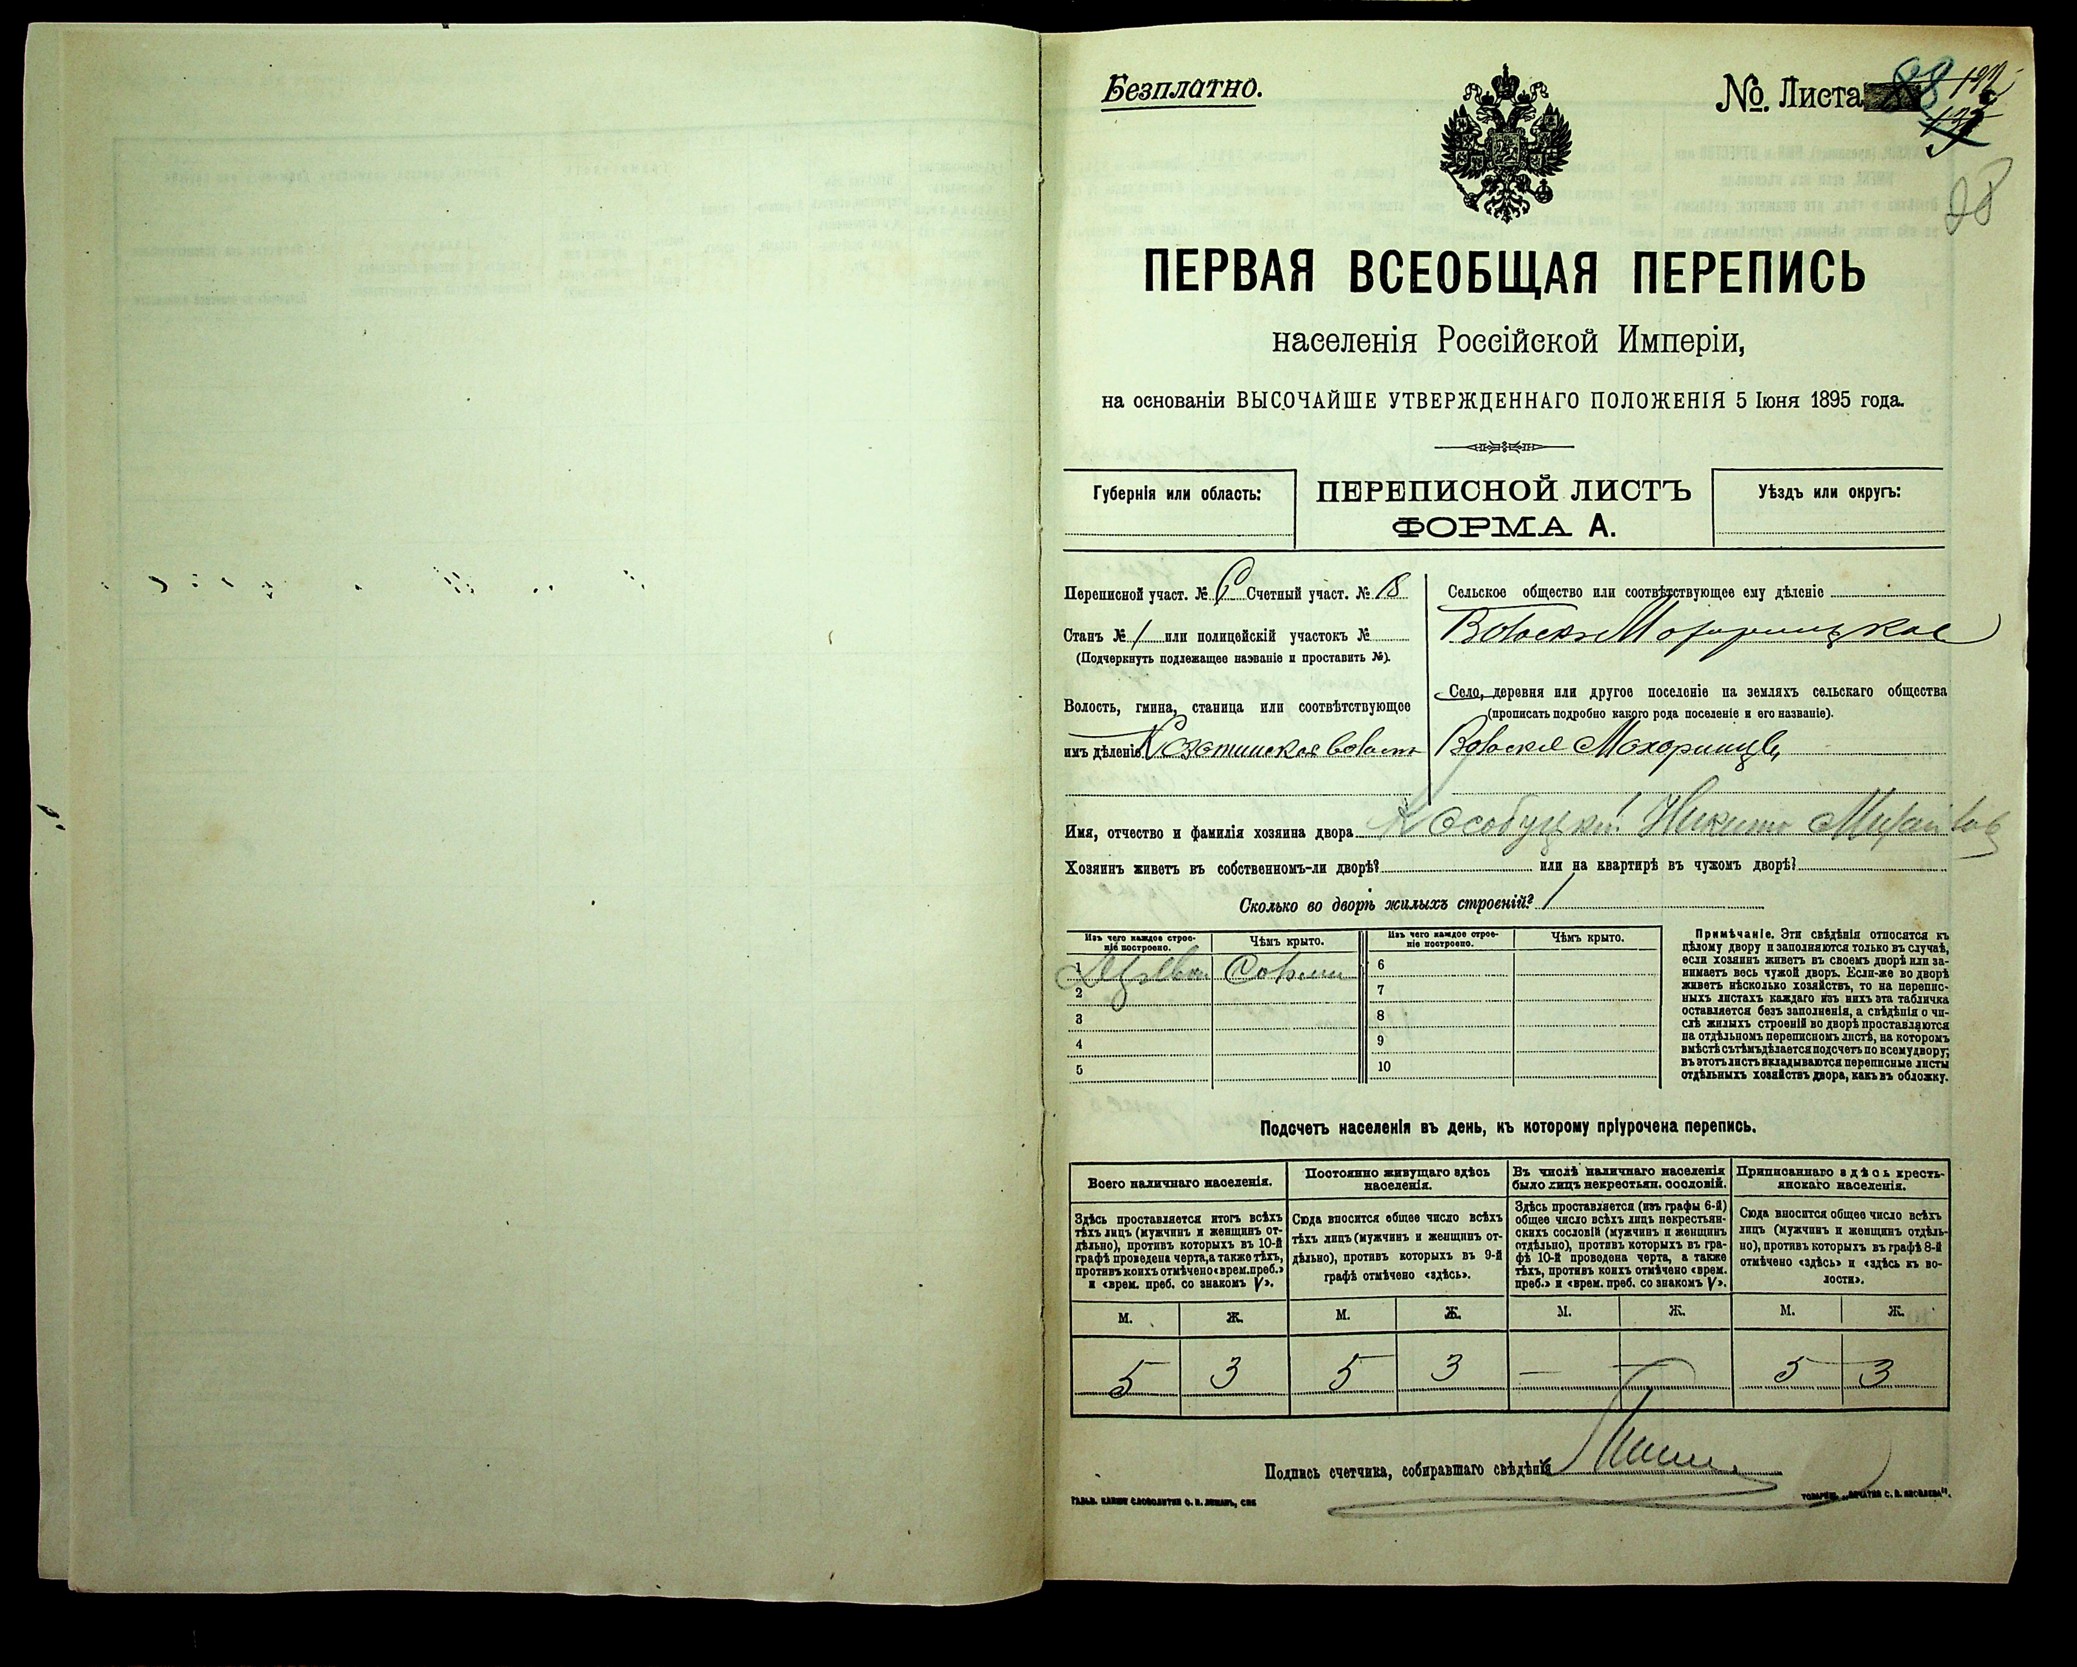 Безплатно.
№ Листа 88
28
ПЕРВАЯ ВСЕОБЩАЯ ПЕРЕПИСЬ
населенія Россійской Имперіи,
на основаніи ВЫСОЧАЙШЕ УТВЕРЖДЕННАГО ПОЛОЖЕНІЯ 5 Іюня 1895 года.
Губернія или область:
ПЕРЕПИСНОЙ ЛИСТЪ
ФОРМА А.
Уѣздъ или округъ:
Переписной участ. № 6 Счетный участ. № 18
Станъ № 1 или полицейскій участокъ №
(Подчеркнуть подлежащее названіе и проставить №).
Волость, гмина, станица или соотвѣтствующее
имъ дѣленіе
Сельское общество или соотвѣтствующее ему дѣленіе
Село, деревня или другое поселеніе на земляхъ сельскаго общества
(прописать подробно какого рода поселеніе и его названіе).
Махоринцы
Имя, отчество и фамилія хозяина двора Кособуцкій Никита Михайловъ
Хозяинъ живетъ въ собственномъ-ли дворѣ? или на квартирѣ въ чужомъ дворѣ?
Сколько во дворѣ жилыхъ строеній? 1
Изъ чего каждое строе-
ніе построено.
Чѣмъ крыто.
Изъ чего каждое строе-
ніе построено.
Чѣмъ крыто.
1
2
3
4
5
6
7
8
9
10
Примѣчаніе. Эти свѣдѣнія относятся къ
цѣлому двору и заполняются только въ случаѣ,
если хозяинъ живетъ въ своемъ дворѣ или за-
нимаетъ весь чужой дворъ. Если-же во дворѣ
живетъ нѣсколько хозяйствъ, то на перепис-
ныхъ листахъ каждаго изъ нихъ эта табличка
оставляется безъ заполненія, а свѣдѣнія о чи-
слѣ жилыхъ строеній во дворѣ проставляются
на отдѣльномъ переписномъ листѣ, на которомъ
вмѣстѣ съ тѣмъ дѣлается подсчетъ по всему двору;
въ этотъ листъ вкладываются переписные листы
отдѣльныхъ хозяйствъ двора, какъ въ обложку.
Подсчетъ населенія въ день, къ которому пріурочена перепись.
Всего наличнаго населенія.
Здѣсь проставляется итогъ всѣхъ
тѣхъ лицъ (мужчинъ и женщинъ от-
дѣльно), противъ которыхъ въ 10-й
графѣ проведена черта, а также тѣхъ,
противъ коихъ отмѣчено «врем. преб.»
и «врем. преб. со знакомъ V».
Постоянно живущаго здѣсь
населенія.
Сюда вносится общее число всѣхъ
тѣхъ лицъ (мужчинъ и женщинъ от-
дѣльно), противъ которыхъ въ 9-й
графѣ отмѣчено «здѣсь».
Въ числѣ наличнаго населенія
было лицъ некрестьян. сословій.
Здѣсь проставляется (изъ графы 6-й)
общее число всѣхъ лицъ некрестьян-
скихъ сословій (мужчинъ и женщинъ
отдѣльно), противъ которыхъ въ гра-
фѣ 10-й проведена черта, а также
тѣхъ, противъ коихъ отмѣчено «врем.
преб.» и «врем. преб. со знакомъ V».
Приписаннаго здѣсь кресть-
янскаго населенія.
Сюда вносится общее число всѣхъ
лицъ (мужчинъ и женщинъ отдѣль-
но), противъ которыхъ въ графѣ 8-й
отмѣчено «здѣсь» и «здѣсь къ во-
лости».
М. Ж. М. Ж. М. Ж. М. Ж.
5 3 5 3 — — 5 3
Подпись счетчика, собиравшаго свѣдѣнія